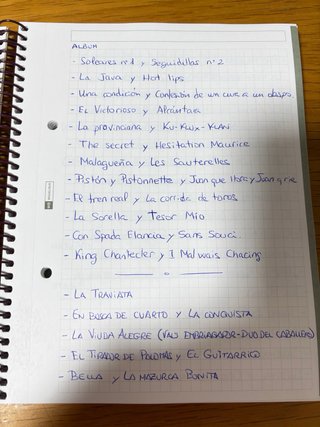 ALBUM
- Soleares nº1 y Seguidillas nº2
- La Java y Hot lips
- Una condición y Confesión de un cura a un obispo.
- El Victorioso y Alcántara
- La provinciana y Ku-Klux-Klan
- The secret y Hesitation Maurice
- Malagueña y Les Sauterelles
- Pistón y Pistonnette y Juan que llora y Juan q rie
- El tren real y La corrida de toros
- La Sorella y Tesor Mio
- Con Spada Elancia y Sans Souci.
- King Chantecler y I Malwais Chacing
- LA TRAVIATA
- EN BUSCA DE CUARTO y LA CONQUISTA
- LA VIUDA ALEGRE (VALS EMBRIAGADOR-DUO DEL CABALLERO)
- EL TIRADOR DE PALOMAS y EL GUITARRICO
- BELLA y LA MAZURCA BONITA